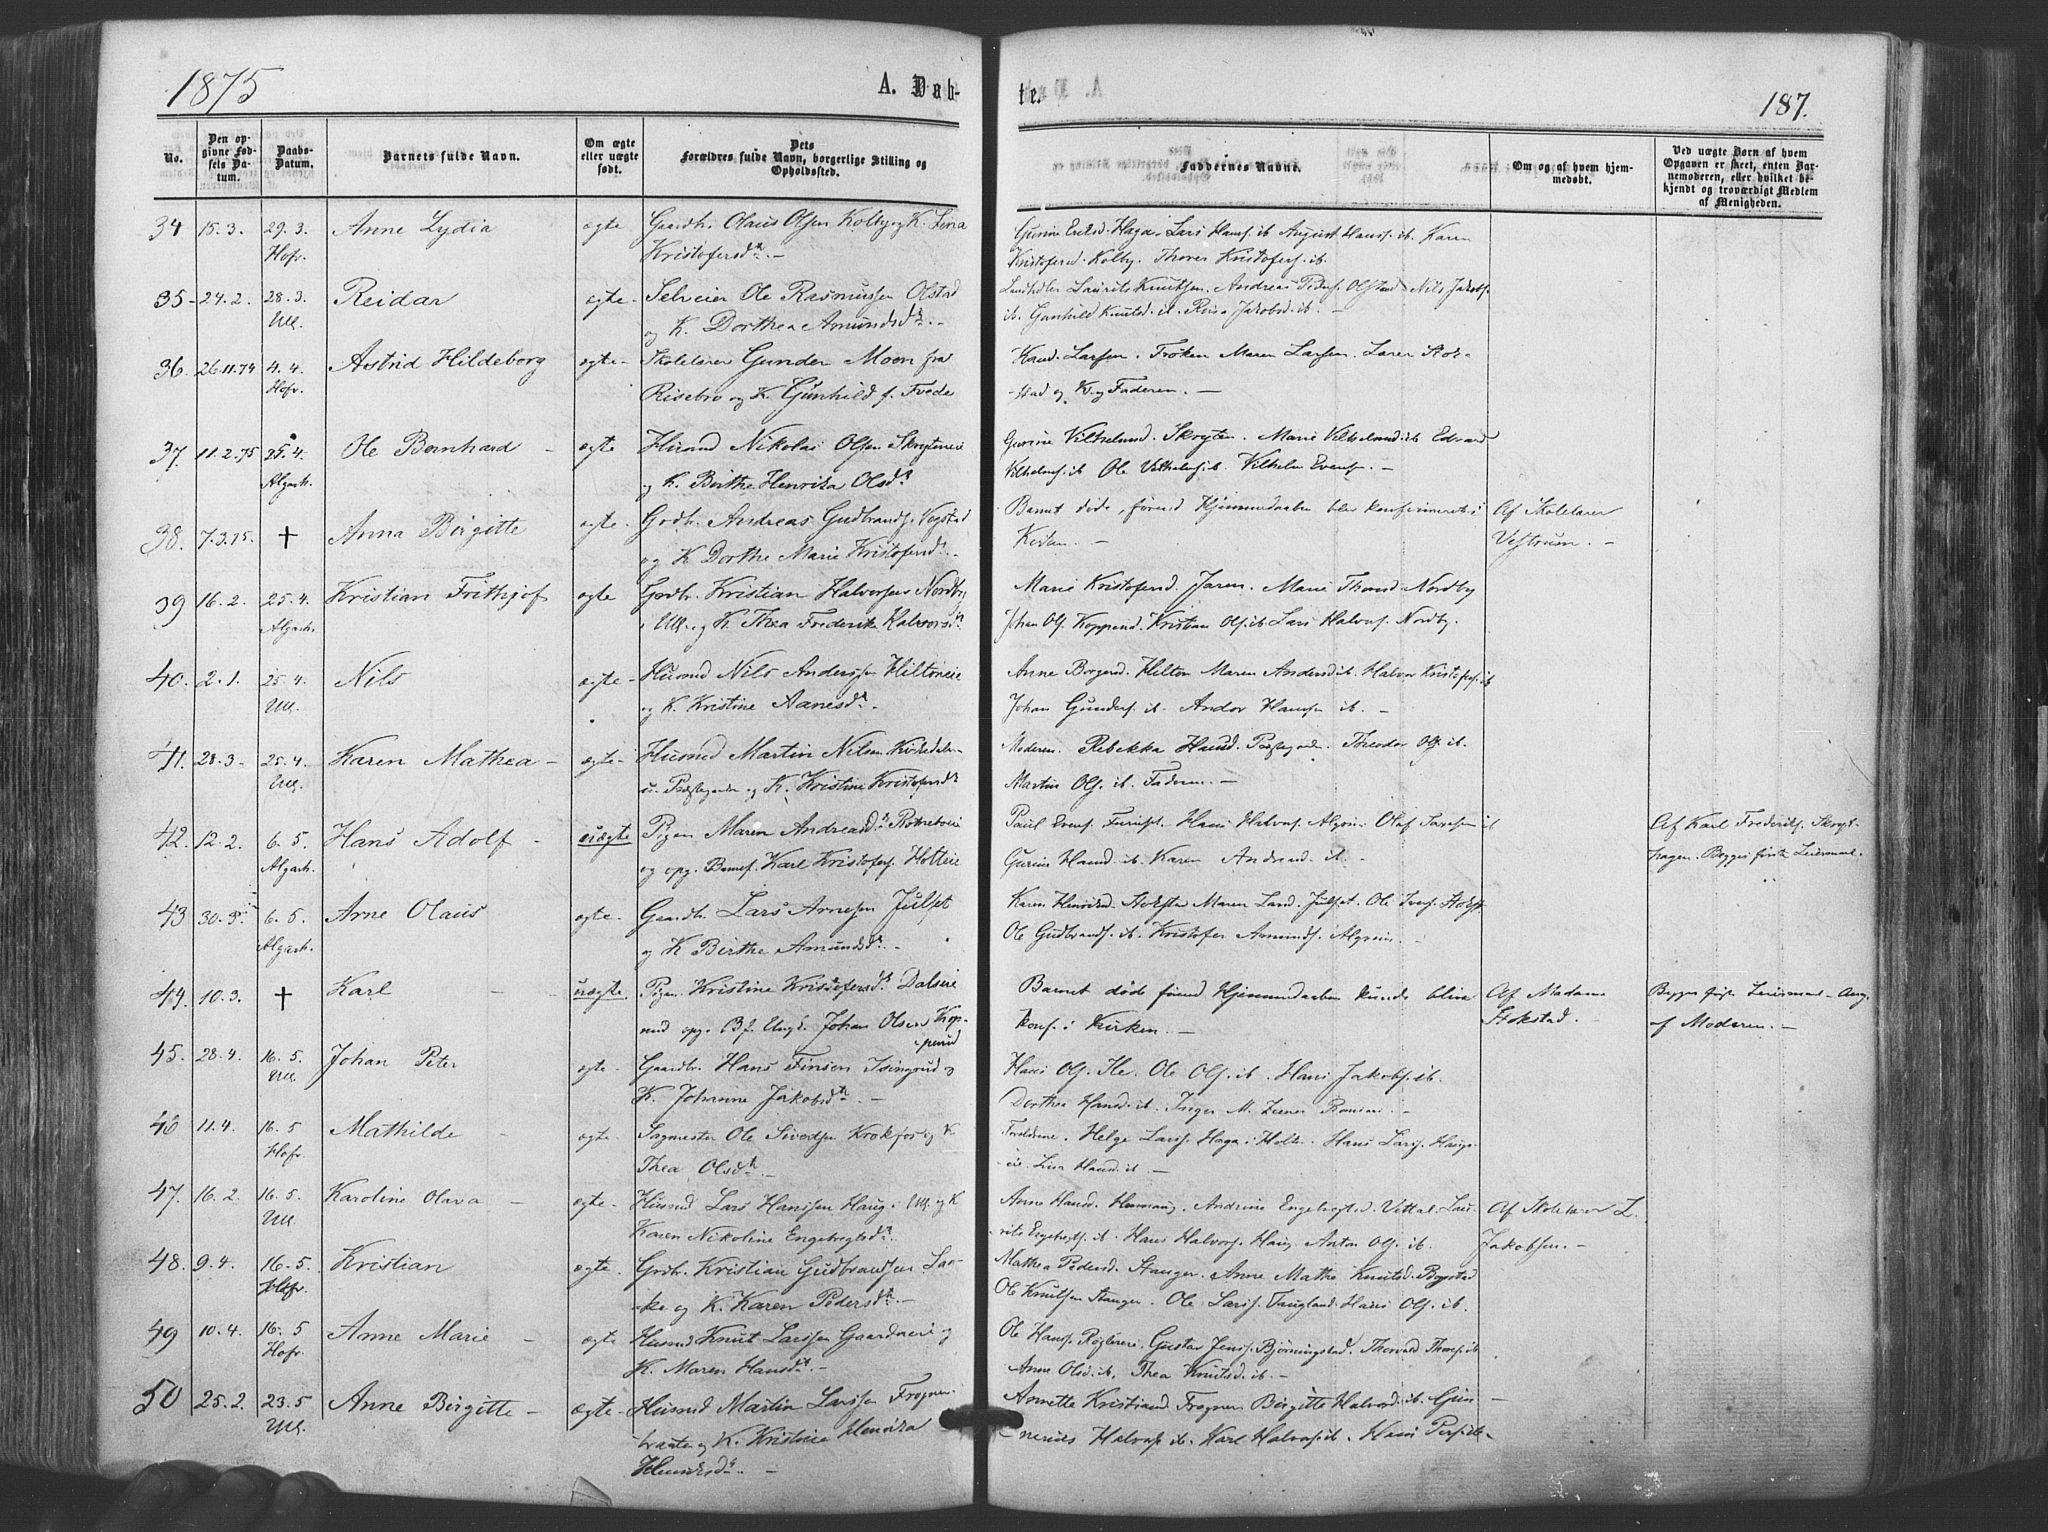 1875
A. Døb-
te.
187.
No.
Den op-
givne Fød-
sels Da-
tum.
Daabs-
Datum.
Barnets fulde Navn.
Om ægte
eller uægte
født.
Dets
Forældres fulde Navn, borgerlige Stilling og
Opholdssted.
Faddernes Navne.
Om og af hvem hjem-
medøbt.
Ved uægte Børn af hvem
Opgaven er skeet, enten Bar-
nemoderen, eller hvilket be-
kjendt og troværdigt Medlem
af Menigheden.
34 15.3. 29.3. Anne Lydia ægte Gaardbr. Olaus Olsen Kolby og K. Lina
Hofr. Kristofersdtr. —
Haga. Lars Hansf. ib. August Hansf. ib. Karen
Kristofersd. Kolby. Thorer Kristofersf. ib.
35- 24.2. 28.3. Reidar ægte- Selveier Ole Rasmussen Olstad
Ull. og K. Dorthea Amundsdtr. —
Laurits Knutsen. Andreas Pedersf. Olstad. Nils Jakobsf.
ib. Gunhild Knutsd. ib. Jakobsd. ib. —
36. 26.11.74 4.4. Astrid Hildeborg ægte- Skolelærer Gunder Moen fra
Hofr. Risebro og K. Gunhild f. Tvede
Larsen. Frøken Maren Larsen. Lærer Stok-
stad og K. og Faderen. —
37. 11.2.75 25.4. Ole Bernhard - ægte Husmd Nikolai Olsen
Algarh. og K. Birthe Henrika Olsdtr
Vilhelmsd. Skryten. Marie Vilhelmsd. ib. Edvard
Vilhelmsf. ib. Ole Vilhelmsf. ib. Vilhelm Evensen. —
38. 7.3.75. † Anna Birgitte ægte- Grdbr. Andreas Gudbrandsf. Vogstad
og K. Dorthe Marie Kristofersdtr. —
Barnet døde, førend Hjemmedaaben blev konfirmeret i
Kirken. —
Af Skolelærer
Vestrum. —
39 16.2. 25.4. Kristian Frithjof ægte Grdbr. Kristian Halvorsen Nordby
Algarh. i Ull. og K. Thea Frederike Halvorsdtr.
Marie Kristofersd. Jaren. Marie Thorsd. Nordby
Johan Olsf. Koppend. Kristian Olsf. ib. Lars Halvorsf. Nordby.
40. 2.1. 25.4. Nils ægte- Husmd Nils Andersen Hiltoneie
Ull. og K. Kristine Aanesdtr. —
Anne Borgersd. Hilton Maren Andersd. ib. Halvor Kristofersf. ib
Johan Gundersf. ib. Andor Hansen ib. —
41. 28.3- 25.4. Karen Mathea - ægte- Husmd Martin Nilsen
Ull. u. Præstegaarden og K. Kristine Kristofersdtr
Moderen. Rebekka Hansd. Præstegaarden. Theodor Olsf. ib.
Martin Olsf. ib. Faderen. —
42. 12.2. 6.5. Hans Adolf - uægte Pigen Maren Andreasdtr.
Algarh. og opg. Barnef. Karl Kristofersf.
Paul Evensf. Hans Halvorsf. Olaf ib
Hansd. ib. Karen Andreasd. ib. —
Af Karl Frederiksf.
Begges første Leiermaal.
43 30.3. 6.5. Arne Olaus ægte- Gaardbr. Lars Arnesen Julset
Algarh. og K Birthe Amundsdtr. —
Karen Henriksd. Maren Larsd. Julset. Ole Iversf.
Ole Gudbrandsf. ib. Kristofer Amundsf. —
44. 10.3. † Karl - - uægte Pigen Kristine Kristofersdtr.
opg. B.f. Ungk. Johan Olsen Kop-
perud
Barnet døde førend Hjemmedaaben kunde blive
konf. i Kirken. —
Af Madame
Stokstad. —
Begges første Leiermaal- Ang.
af Moderen. —
45. 28.4. 16.5. Johan Peter ægte- Gaardbr. Hans Finsen og
Ull. K. Johanne Jakobsdtr. —
Hans Olsf. Ole Olsf. ib. Hans Jakobsf. ib.
Dorthea Hansd. ib. Inger M. —
46 11.4. 16.5 Mathilde - ægte- Sagmester Ole Sivertsen Krokfos og K
Hofr. Thea Olsdtr. —
Forældrene. Helge Larsf. Haga i Holter. Hans Larsf.
Hansd. ib. —
47. 16.2. 16.5. Karoline Olava - ægte- Husmd Lars Hanssen Haug i Ull. og K
Ull. Karen Nikoline Engebregtsdtr.
Anne Hansd. Andrine Engebregtsd. Vettal. Lau-
rits Engebregtsf. ib. Hans Halvorsf. Haug. Anton Olsf. ib.
Af Skolelærer L.
Jakobsen. —
48. 9.4. 16-5. Kristian ægte- Grdbr. Kristian Gudbrandsen Laa-
Hofr. ke og K. Karen Pedersdtr. —
Mathea Pedersd. Stanger. Anne Mathea Knutsd.
Ole Knutsen Stanger. Ole Larsf. Hans Olsf. ib.
49 10.4. 16.5 Anne Marie - ægte Husmd Knut Larssen og
Hofr. K. Maren Hansdtr. —
Ole Hansf. Gustav Jensf. Bjørningstad. Thorvald Thorsf. ib
Anne Olsd. ib. Thea Knutsd. ib. —
50 25.2. 23.5 Anne Birgitte - ægte- Husmd Martin Larssen Frogner-
Ull. og K. Kristine Henrika
Henriksdtr. —
Annette Kristiansd. Frogner. Birgitte Halvorsd. ib. Gun-
nerius Halvorsf. ib. Karl Halvorsf. ib. Hans